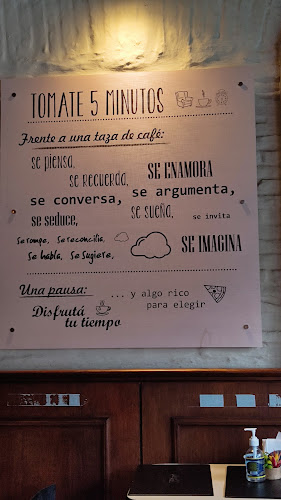 TOMATE 5 MINUTOS
Frente a una taza de café:
se piensa,
se recuerda, SE ENAMORA
se conversa, se argumenta,
se seduce, se sueña, se invita
Se rompe, Se reconcilia, SE IMAGINA
Se habla, Se Sugiere,
Una pausa: ... y algo rico
para elegir
Disfrutá
tu tiempo